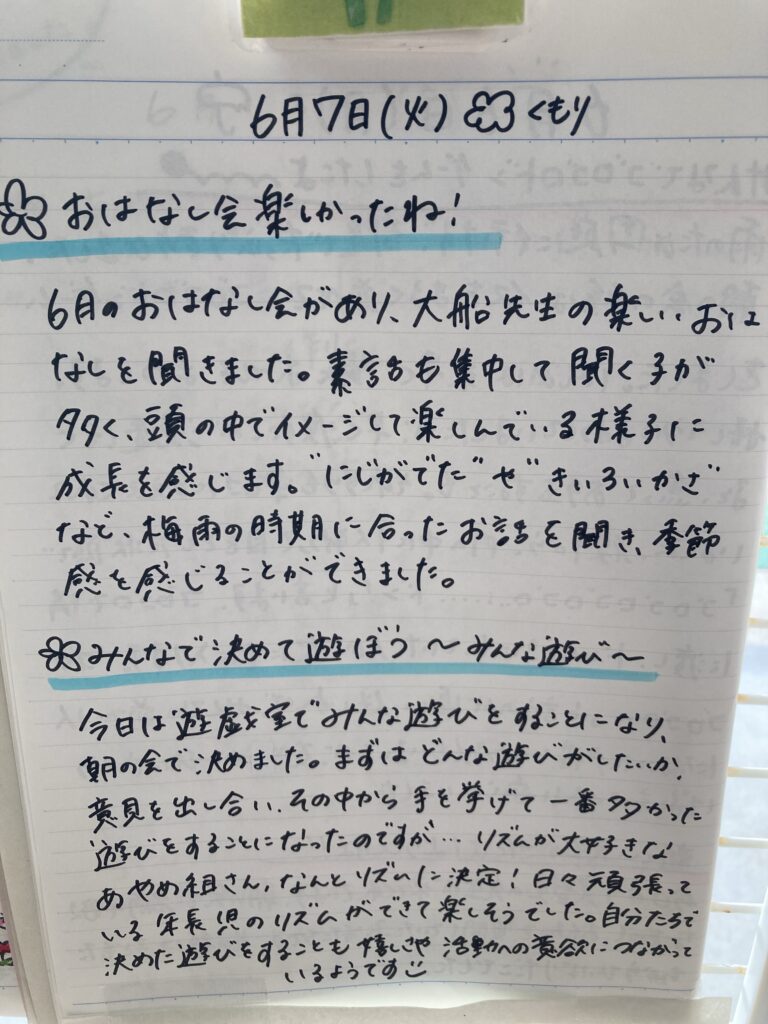 6月7日(火) くもり
おはなし会楽しかったね!
6月のおはなし会があり、大船先生の楽しいおは
なしを聞きました。素話も集中して聞く子が
多く、頭の中でイメージして楽しんでいる様子に
成長を感じます。"にじがでた"や"きいろいかさ"
など、梅雨の時期に合ったお話を聞き、季節
感を感じることができました。
みんなで決めて遊ぼう 〜みんな遊び〜
今日は遊戯室でみんな遊びをすることになり、
朝の会で決めました。まずはどんな遊びがしたいか、
意見を出し合い、その中から手を挙げて一番多かった
遊びをすることになったのですが… リズムが大好きな
あやめ組さん、なんとリズムに決定!日々頑張って
いる年長児のリズムができて楽しそうでした。自分たちで
決めた遊びをすることも嬉しさや活動への意欲につながって
いるようです